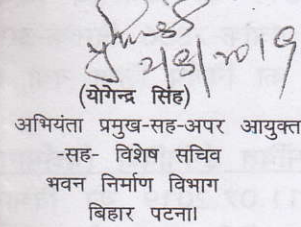 (योगेन्द्र सिंह)
अभियंता प्रमुख-सह-अपर आयुक्त
-सह- विशेष सचिव
भवन निर्माण विभाग
बिहार पटना।